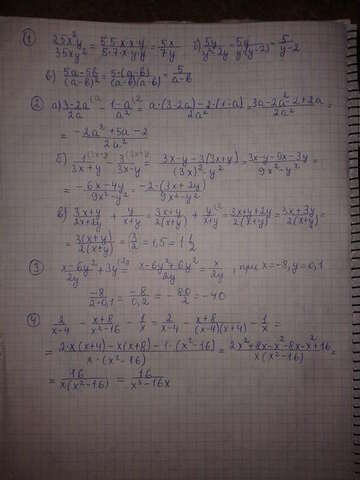 ① 25x²y/35xy² = 5·5·x·x·y/5·7·x·y·y = 5x/7y б) 5y/y²-2y = 5y/y(y-2) = 5/y-2
в) 5a-5b/(a-b)² = 5·(a-b)/(a-b)(a-b) = 5/a-b
② а) 3-2a/2a - 1-a/a² = a·(3-2a)-2·(1-a)/2a² = 3a-2a²-2+2a/2a² =
= -2a²+5a-2/2a²
б) 1/3x+y - 3/3x-y = 3x-y-3(3x+y)/(3x)²-y² = 3x-y-9x-3y/9x²-y² =
= -6x-4y/9x²-y² = -2·(3x+2y)/9x²-y²
в) 3x+y/2x+2y + y/x+y = 3x+y/2(x+y) + y/x+y = 3x+y+2y/2(x+y) = 3x+3y/2(x+y) =
= 3(x+y)/2(x+y) = 3/2 = 1,5 = 1 1/2
③ x-6y²/2y + 3y = x-6y²+6y²/2y = x/2y, при x=-8, y=0,1
-8/2·0,1 = -8/0,2 = -80/2 = -40
④ 2/x-4 - x+8/x²-16 - 1/x = 2/x-4 - x+8/(x-4)(x+4) - 1/x =
= 2·x(x+4)-x(x+8)-1·(x²-16)/x·(x²-16) = 2x²+8x-x²-8x-x²+16/x(x²-16) =
= 16/x(x²-16) = 16/x³-16x